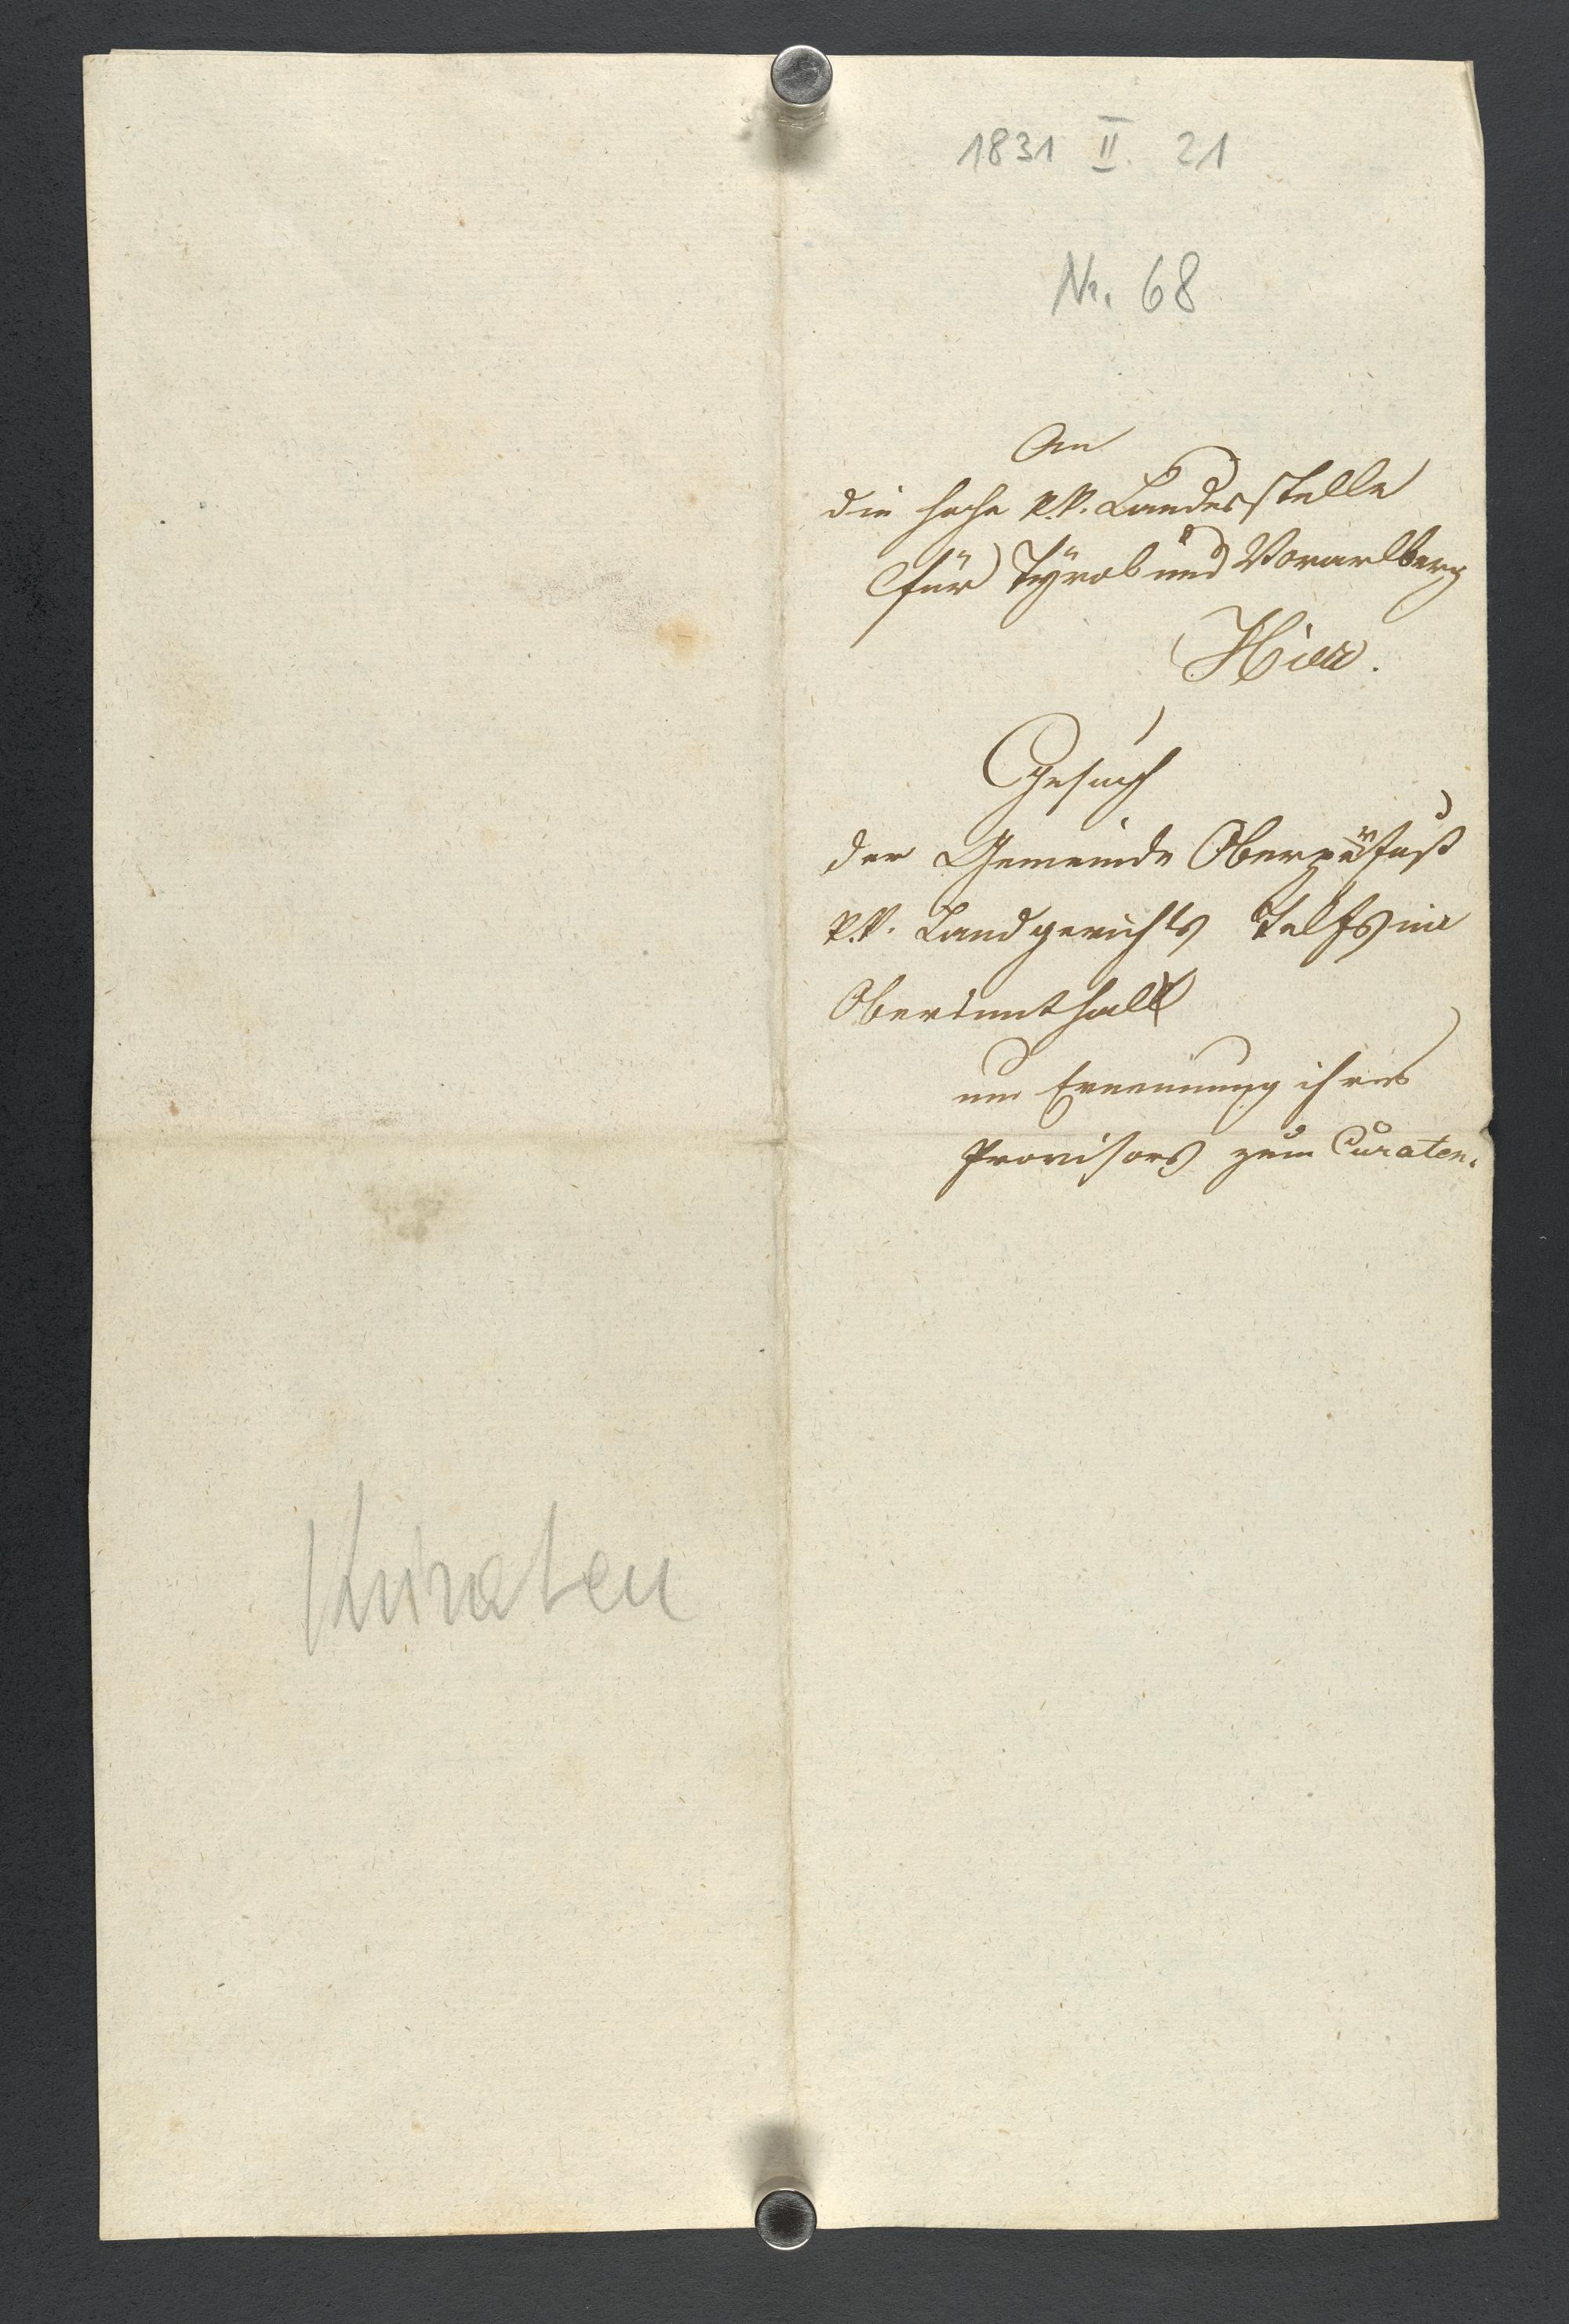 1831 II. 21
Nr. 68
An
die hohe k.k. Landesstelle
für Tÿrol und Vorarlberg
Hier.
Gesuch
der Gemeinde Oberperfuß
k.k. Landgerichts Telfs im
Oberinnthal
um Ernennung ihres
Provisors zum Curaten.
Kuraten